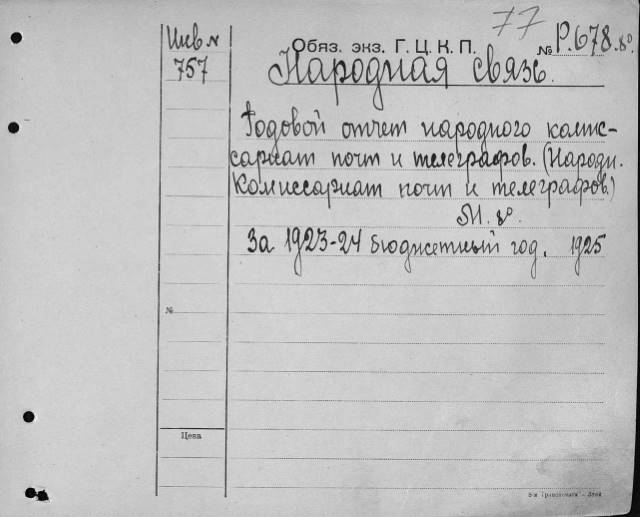 77
Инв №
Обяз. экз. Г. Ц. К. П.
№ Р.678.8°.
757
Народная связь.
Годовой отчет народного комис-
сариат почт и телеграфов. (Народн.
Комиссариат почт и телеграфов.)
М. 8°.
За 1923-24 бюджетный год. 1925
№
Цена